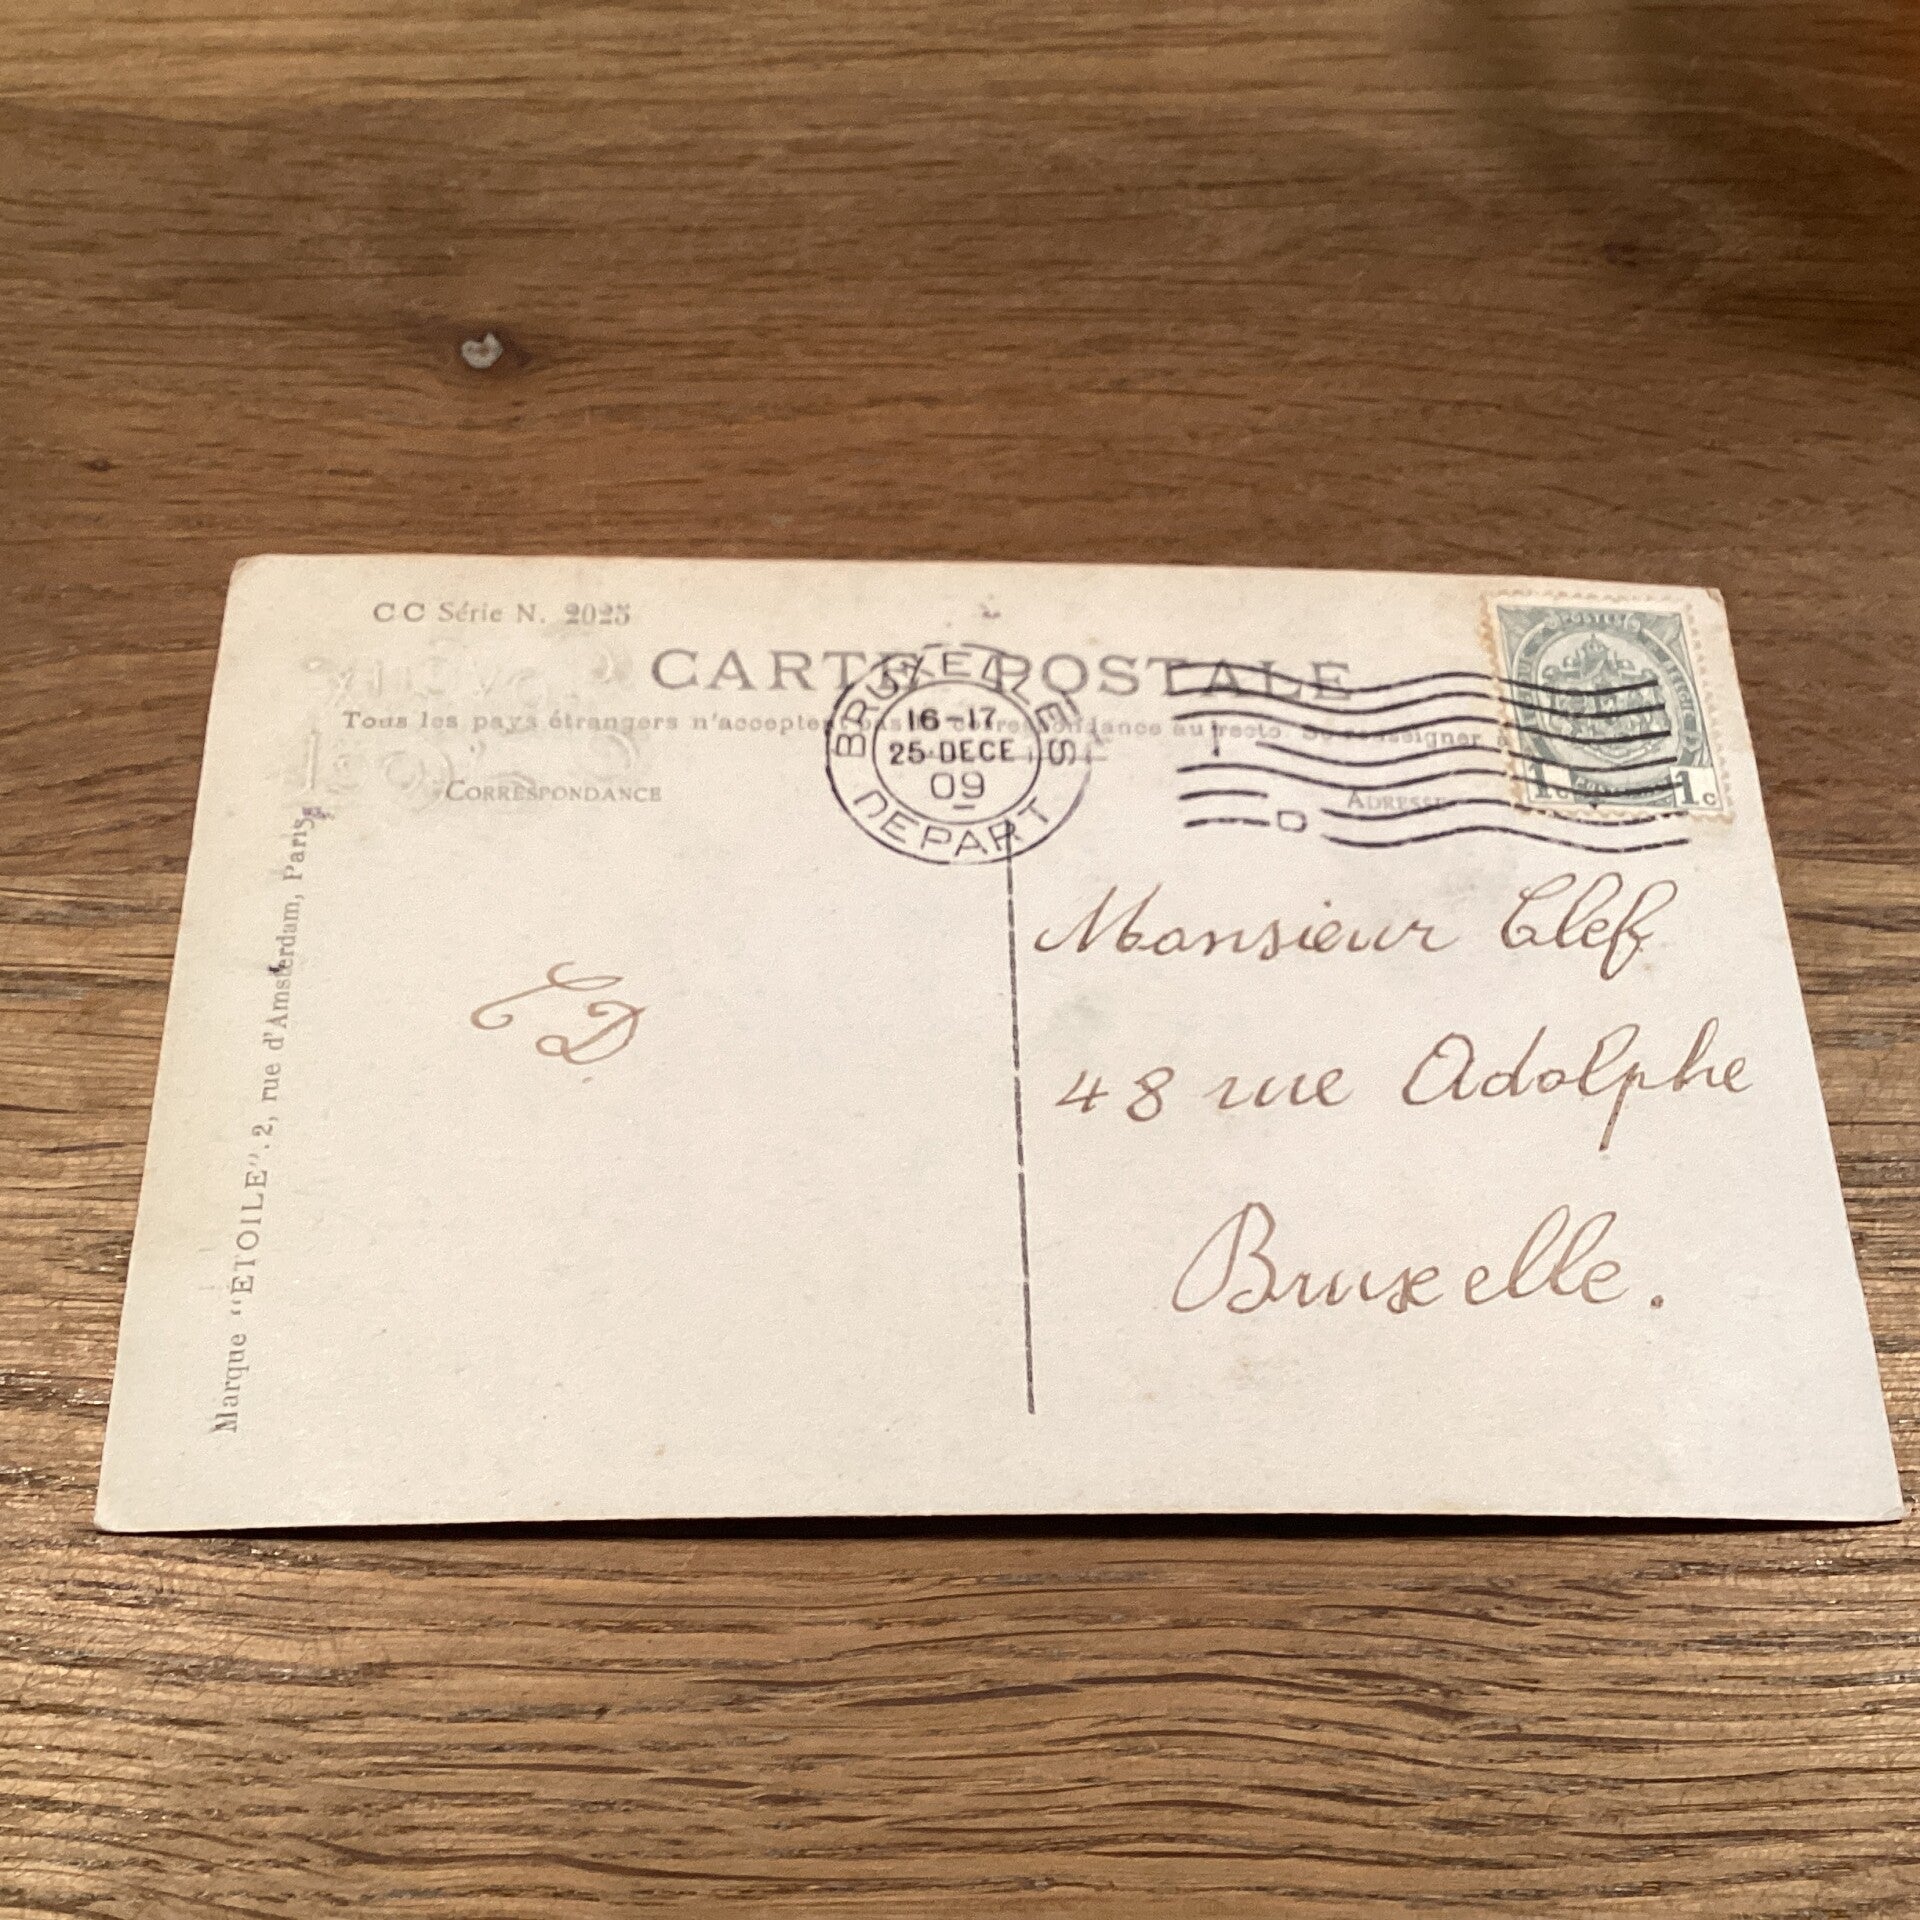 CC Série N. 2025
CARTE POSTALE
Tous les pays étrangers n'acceptent pas la correspondance au recto. Se renseigner à
CORRESPONDANCE
ADRESSE
BRUXELLES
16-17
25 DECE
09
DEPART
POSTES
BELGIQUE
1c 1c
Marque "ETOILE". 2, rue d'Amsterdam, Paris
Monsieur Clef
48 rue Adolphe
Bruxelle.